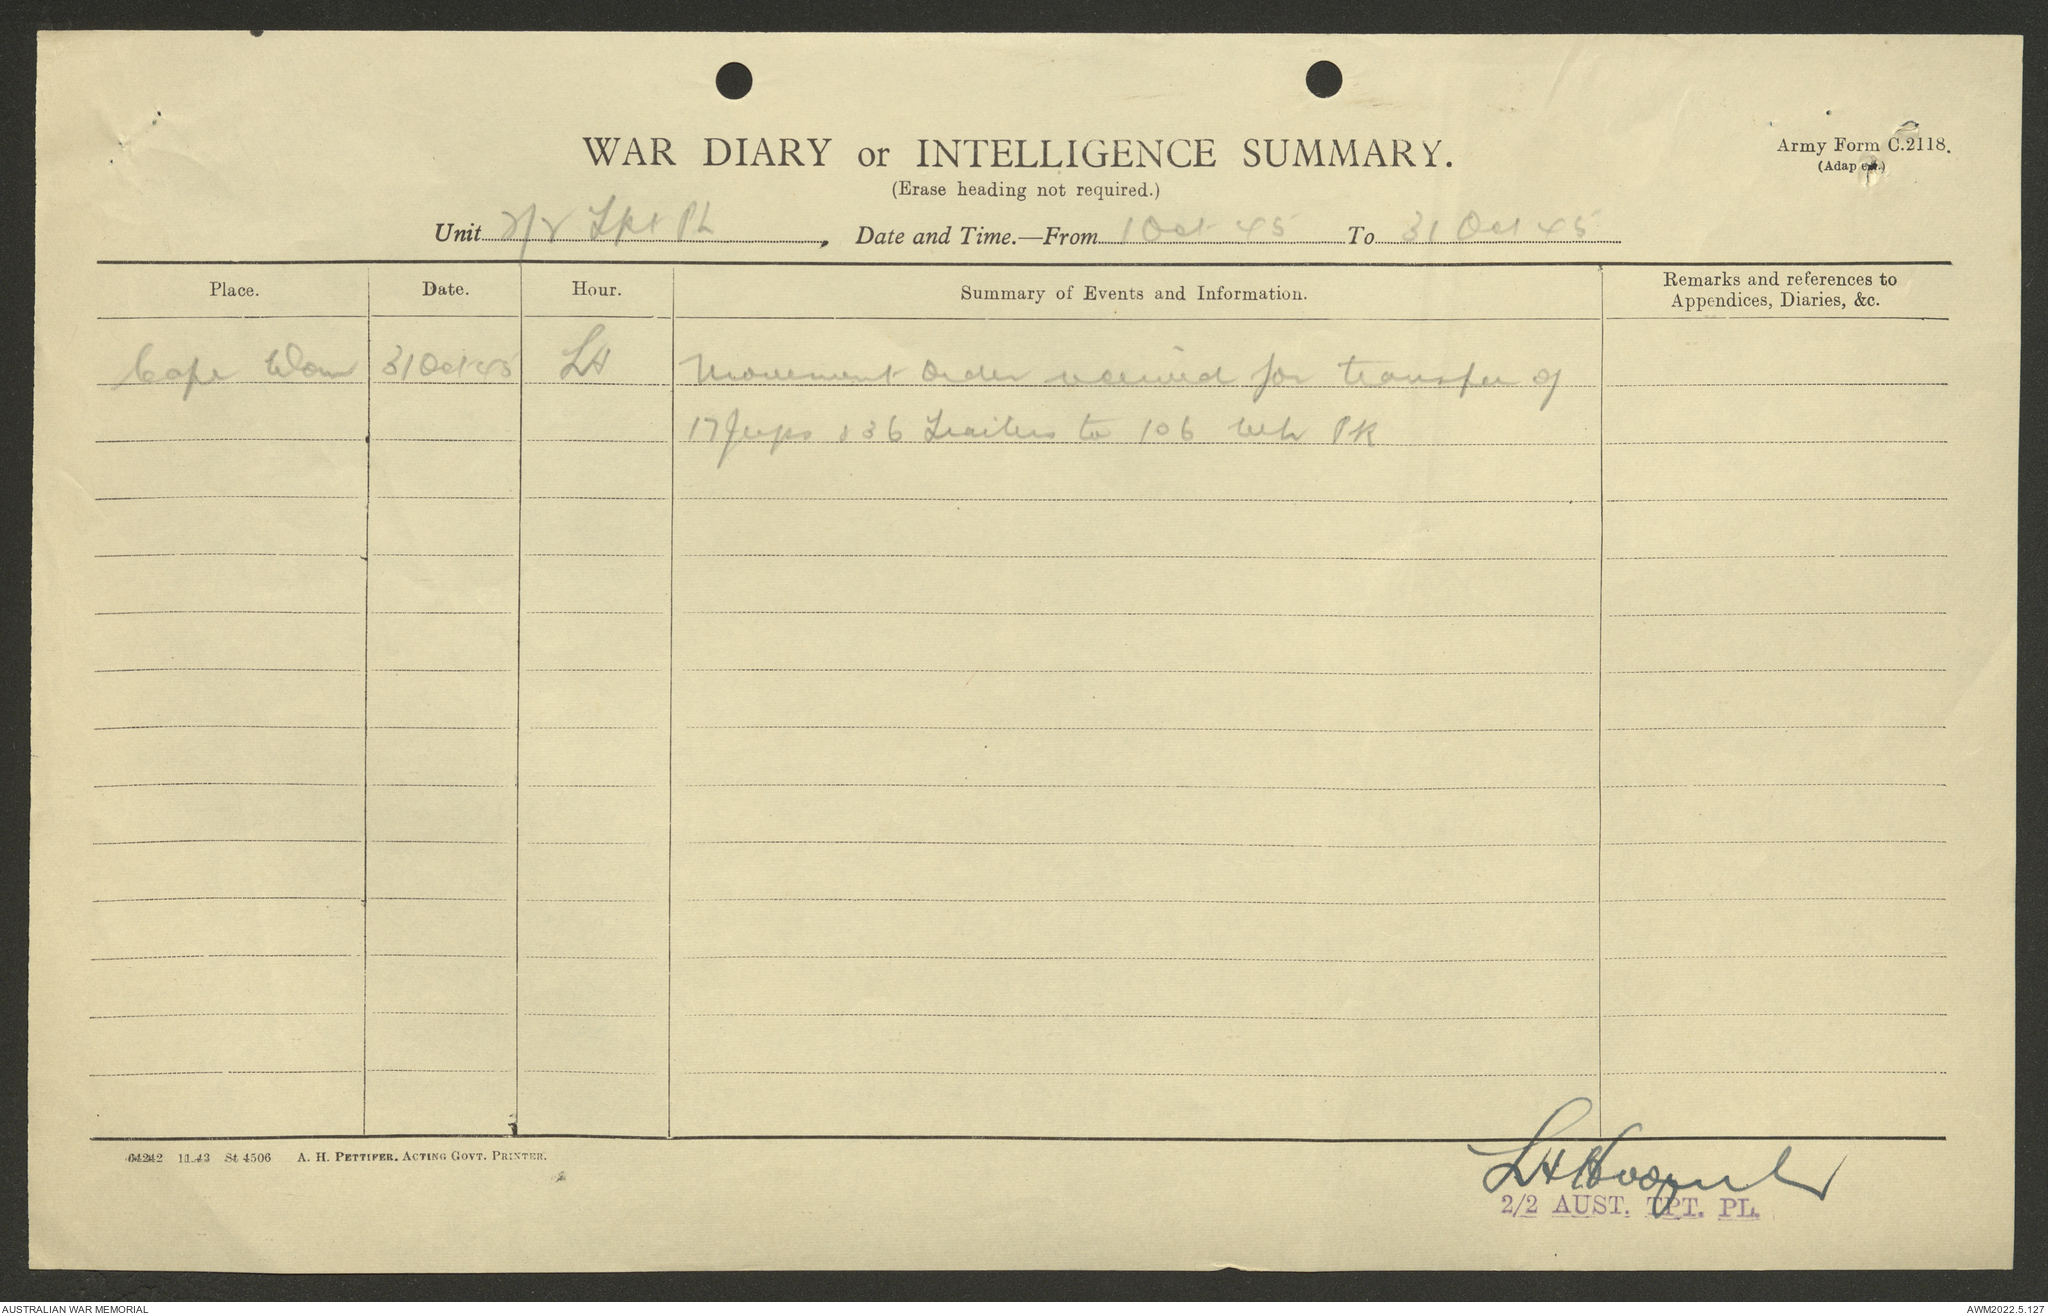 WAR DIARY or INTELLIGENCE SUMMARY.
Army Form C.2118.
(Erase heading not required.)
Unit 2/2 Tpt PL, Date and Time.—From 1 Oct 45 To 31 Oct 45
Place.
Date.
Hour.
Summary of Events and Information.
Remarks and references to
Appendices, Diaries, &c.
Cape Wom 31 Oct 45 LH Movement Order received for transfer of
17 Jeeps & 36 Trailers to 106 Veh PK
64242 11.43 St 4506 A. H. PETTIFER. ACTING GOVT. PRINTER.
2/2 AUST. TPT. PL.
AUSTRALIAN WAR MEMORIAL
AWM2022.5.127